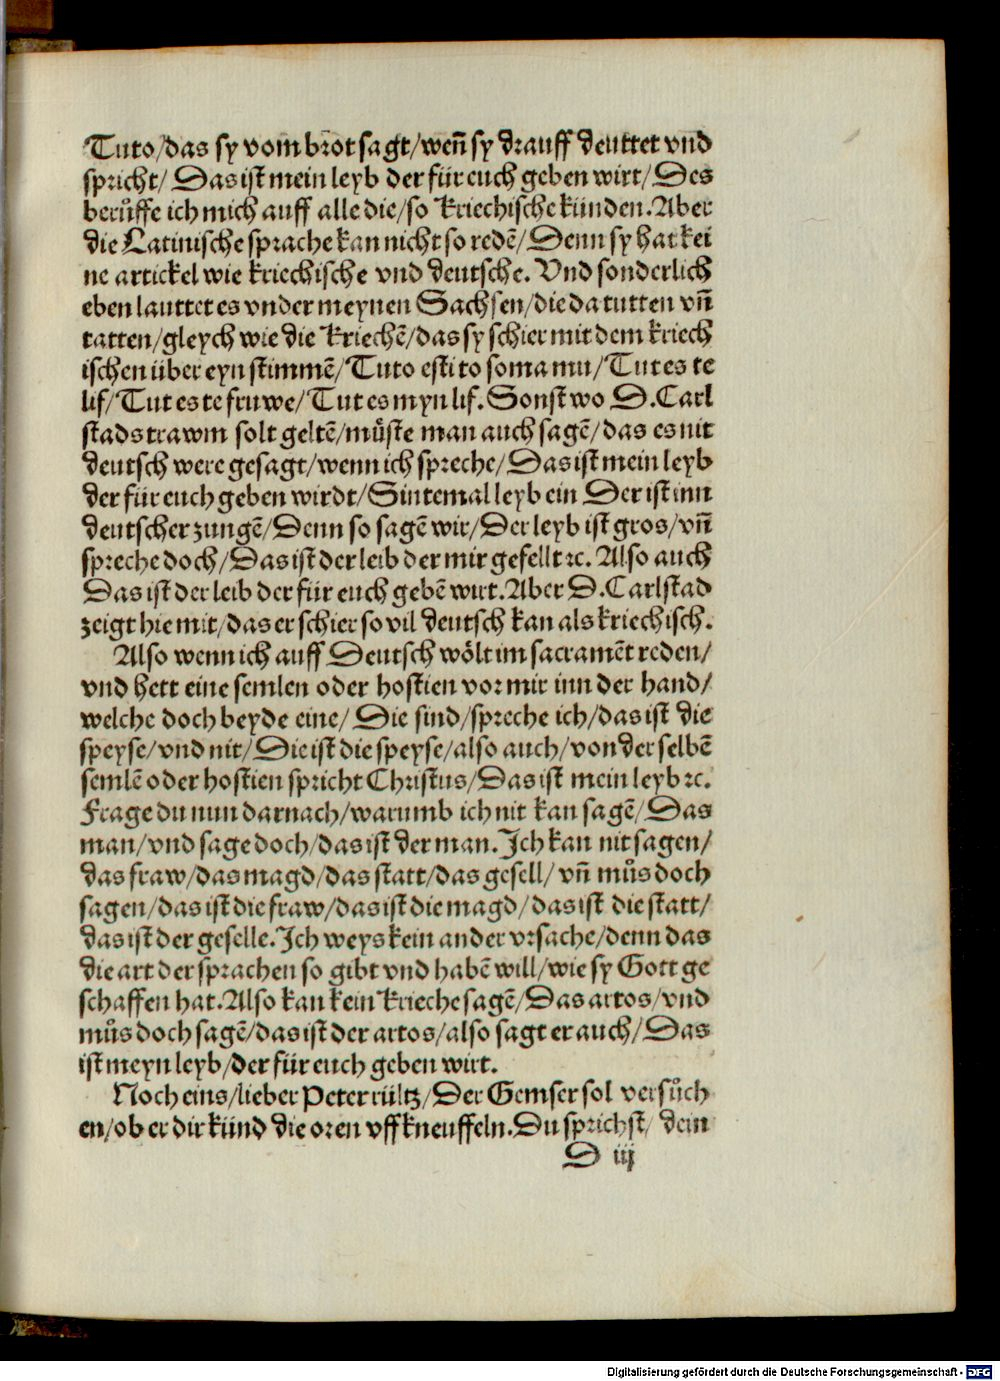 Tuto/das sy vom brot sagt/weñ sy drauff deuttet vnd
spricht/ Das ist mein leyb der für euch geben wirt/ Des
berůffe ich mich auff alle die/so Kriechische künden. Aber
die Latinische sprache kan nicht so redẽ/ Denn sy hat kei
ne artickel wie kriechische vnd deutsche. Vnd sonderlich
eben lauttet es vnder meynen Sachsen/die da tutten vñ
tatten/gleych wie die Kriechẽ/das sy schier mit dem kriech
ischen über eyn stimmẽ/Tuto esti to soma mu/Tut es te
lif/Tut es te fruwe/Tut es myn lif. Sonst wo D. Carl
stads trawm solt geltẽ/můste man auch sagẽ/das es nit
deutsch were gesagt/wenn ich spreche/Das ist mein leyb
der für euch geben wirdt/Sintemal leyb ein Der ist inn
deutscher zungẽ/Denn so sagẽ wir/Der leyb ist gros/vñ
spreche doch/Das ist der leib der mir gefellt ꝛc. Also auch
Das ist der leib der für euch gebẽ wirt. Aber D. Carlstad
zeigt hie mit/das er schier so vil deutsch kan als kriechisch.
Also wenn ich auff Deutsch wölt im sacramẽt reden/
vnd hett eine semlen oder hostien vor mir inn der hand/
welche doch beyde eine/ Die sind/spreche ich/das ist die
speyse/vnd nit/Die ist die speyse/also auch/von der selbẽ
semlẽ oder hostien spricht Christus/Das ist mein leyb ꝛc.
Frage du nun darnach/warumb ich nit kan sagẽ/Das
man/vnd sage doch/das ist der man. Ich kan nit sagen/
das fraw/das magd/das statt/das gesell/ vñ můs doch
sagen/das ist die fraw/das ist die magd/das ist die statt/
das ist der geselle. Ich weys kein ander vrsache/denn das
die art der sprachen so gibt vnd habẽ will/wie sy Gott ge
schaffen hat. Also kan kein Krieche sagẽ/Das artos/vnd
můs doch sagẽ/das ist der artos/also sagt er auch/Das
ist meyn leyb/der für euch geben wirt.
Noch eins/lieber Peter rültz/Der Gemser sol versůch
en/ob er dir künd die oren vffkneuffeln. Du sprichst/ dem
D iij
Digitalisierung gefördert durch die Deutsche Forschungsgemeinschaft - DFG